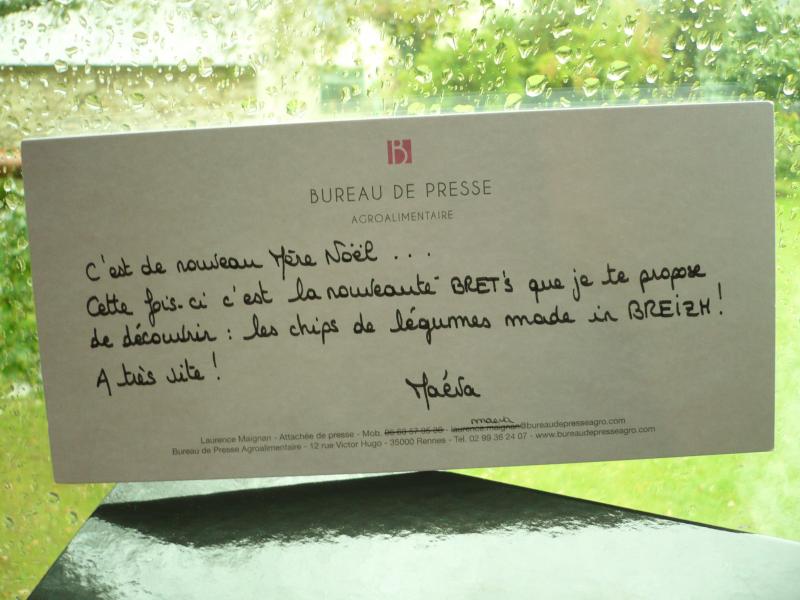 B
BUREAU DE PRESSE
AGROALIMENTAIRE
C'est de nouveau Mère Noël ...
Cette fois-ci c'est la nouveauté BRET'S que je te propose
de découvrir : les chips de légumes made in BREIZH !
A très vite !
Maéva
maeva
Laurence Maignan - Attachée de presse - Mob. - laurence.maignan@bureaudepresseagro.com
Bureau de Presse Agroalimentaire - 12 rue Victor Hugo - 35000 Rennes - Tél. 02 99 36 24 07 - www.bureaudepresseagro.com